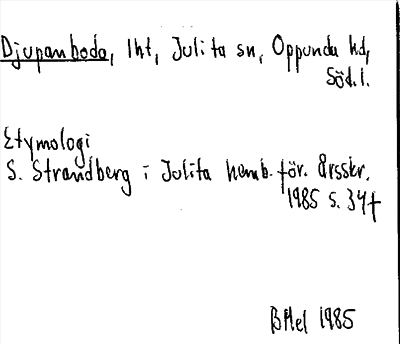 Djupanbodo, lht, Julita sn, Oppunda hd,
Söd.l.
Etymologi
S. Strandberg i Julita hemb. för. årsskr.
1985 s. 34f
BMel 1985